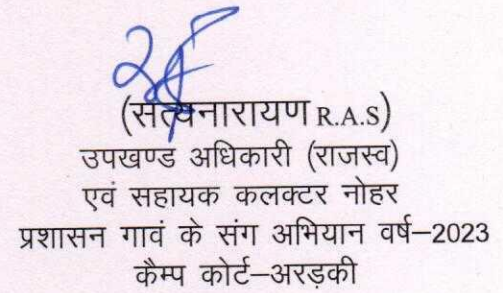 (सत्यनारायण R.A.S)
उपखण्ड अधिकारी (राजस्व)
एवं सहायक कलक्टर नोहर
प्रशासन गावं के संग अभियान वर्ष–2023
कैम्प कोर्ट–अरड़की